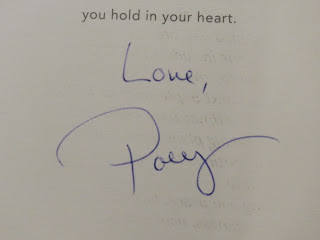 you hold in your heart.
Love,